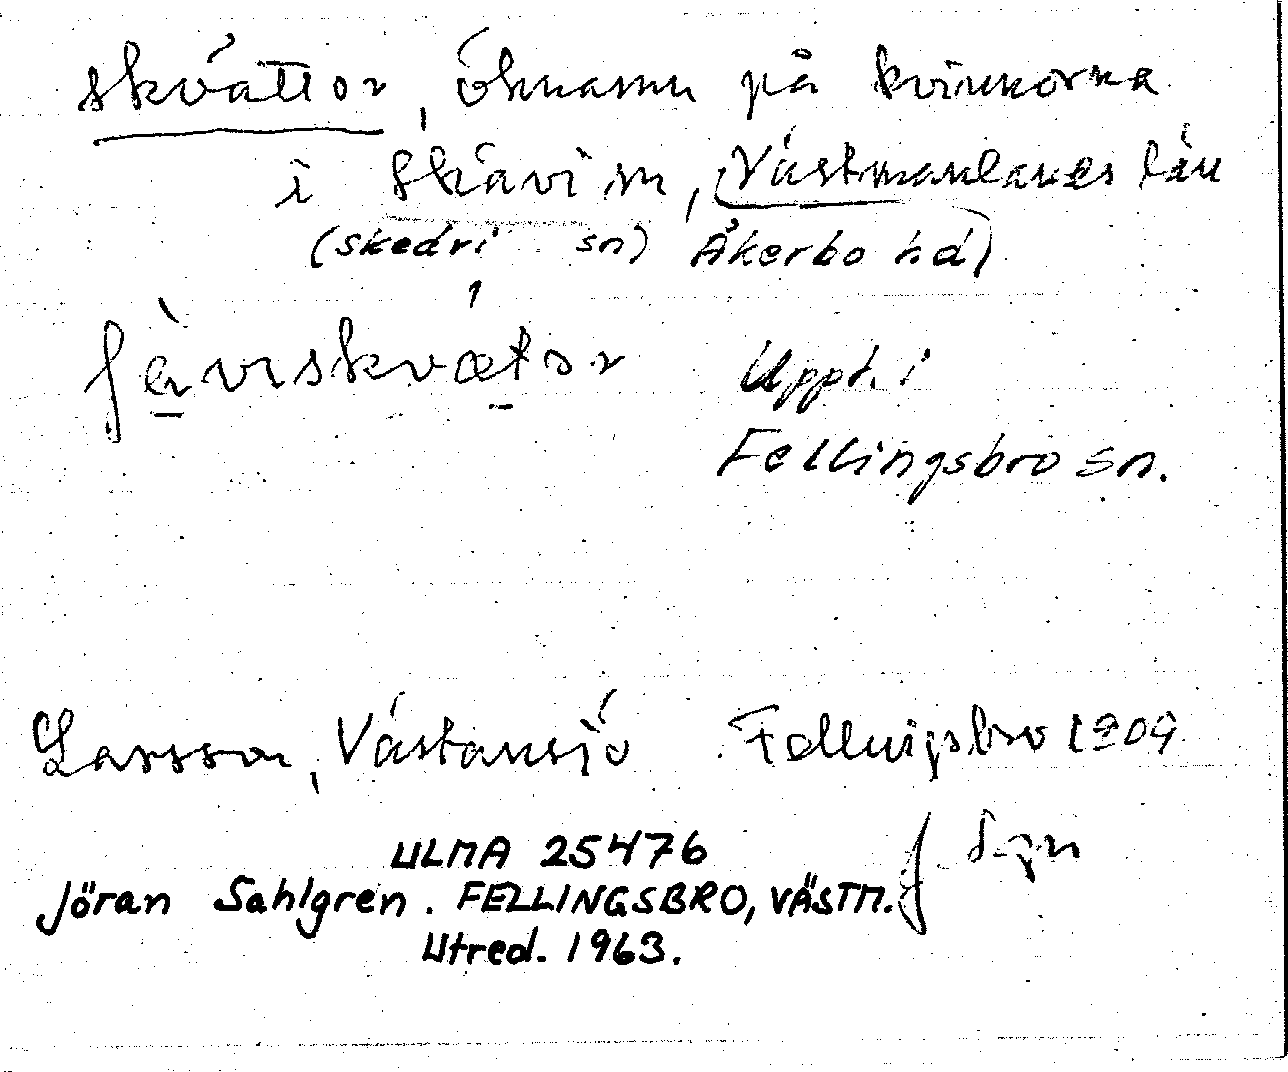 skvättor, öknamn på kvinnorna
i Skävi sn, Västmanlands län
(Skedvi sn) Åkerbo hd)
Uppt. i
Fellingsbro sn.
Larsson, Västansjö Fellingsbro 1909
ULMA 25476
Jöran Sahlgren. FELLINGSBRO, VÄSTM.
Utred. 1963.